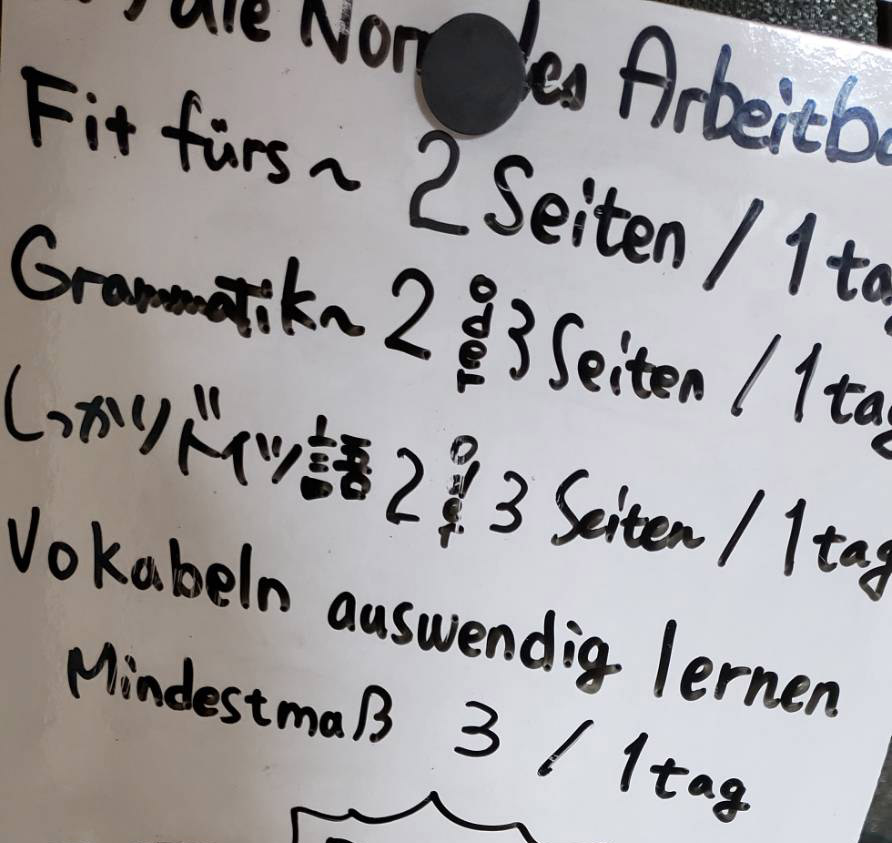 die Nor des Arbeitb
Fit fürs~ 2 Seiten / 1 ta
Grammatik~ 2 oder 3 Seiten / 1 tag
しっかりドイツ語 2 oder 3 Seiten / 1 tag
Vokabeln auswendig lernen
Mindestmaß 3 / 1 tag